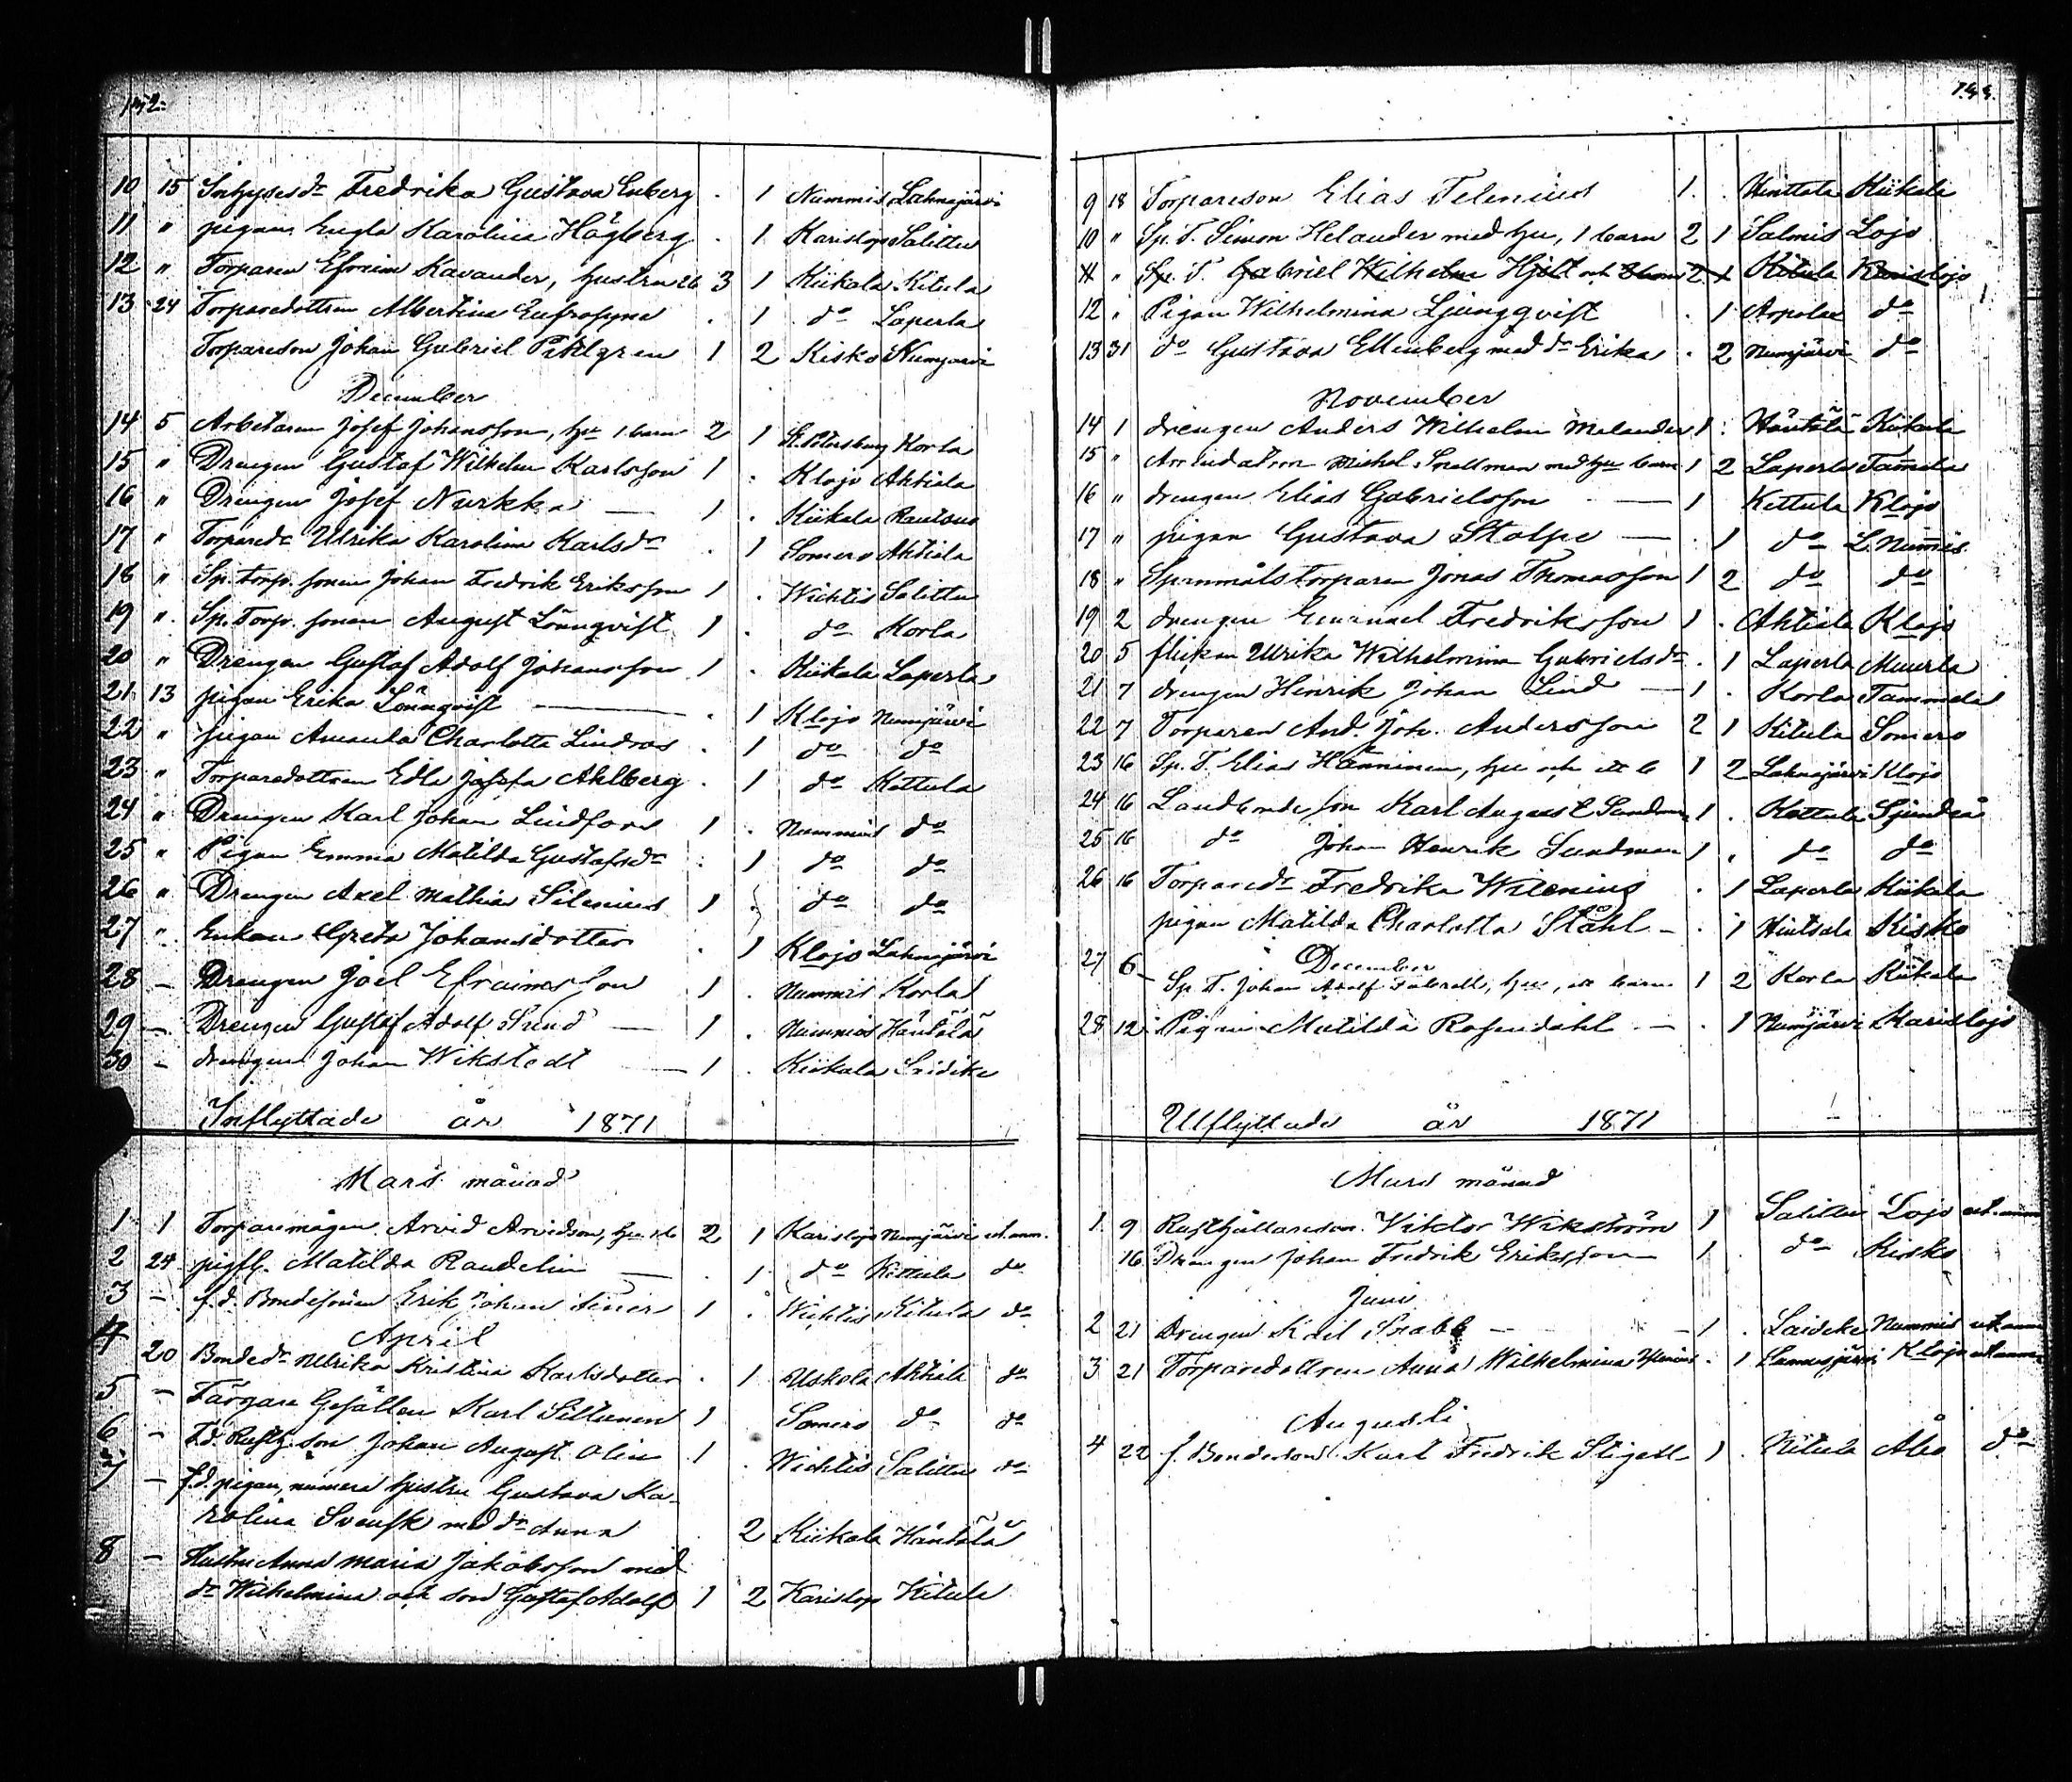 152.
10 15 Inhysesdr Fredrika Gustava Enberg . 1 Nummis Lahnajärvi
11 " pigan Engla Karolina Högberg . 1 Karislojo Salittu
12 " Torparen Efraim Kavander, hustru 2 b 3 1 Kiikala Kitula
13 24 Torparedottren Albertina Eufrosyna . 1 do Laperla
Torpareson Johan Gabriel Pihlgren 1 2 Kisko Numjärvi
December
14 5 Arbetaren Josef Johansson, hu 1 barn 2 1 St. Petersburg Korla
15 " Drengen Gustaf Wilhelm Karlsson 1 . Klojo Ahtiala
16 " Drengen Josef Nurkka — 1 . Kiikala Rautsuo
17 " Torparedr Ulrika Karolina Karlsdr . 1 Somero Ahtiala
18 " Sp. torp. sonen Johan Fredrik Eriksson 1 . Wichtis Salittu
19 " Sp. Torp. sonen August Lönnqvist 1 . do Korla
20 " Drengen Gustaf Adolf Johansson 1 . Kiikala Laperla
21 13 pigan Erika Lönnqvist — . 1 Klojo Numjärvi
22 " pigan Amanda Charlotta Lindroos . 1 do do
23 " Torparedottren Edla Josefa Ahlberg . 1 do Kettula
24 " Drengen Karl Johan Lindfors 1 . Nummis do
25 " Pigan Emma Matilda Gustafsdr . 1 do do
26 " Drengen Axel Mathias Silenius 1 . do do
27 " Enkan Greta Johansdotter . 1 Klojo Lahnajärvi
28 — Drengen Joel Efraimsson 1 . Nummis Korla
29 — Drengen Gustaf Adolf Sund — 1 . Nummis Häntälä
30 — drengen Johan Wikstedt — 1 . Kiikala Saideke
Inflyttade år 1871
Mars månad
1 1 Torparemågen Arvid Arvidson, hu 1 b 2 1 Karislojo Numjärvi ut. anm.
2 24 pigfl. Matilda Randelin — . 1 do Kettula do
3 — f.d. Bondesonen Erik Johan 1 . Wichtis Kitula do
April
4 20 Bondedr Ulrika Kristina Karlsdotter . 1 Uskela Ahtiala do
5 — Färgare Gesällen Karl Siltanen 1 Somero do do
6 — F.d. Rusth. son Johan August Olin 1 . Wichtis Salittu do
7 — f.d. pigan, numera hustru Gustava Ka-
rolina Svensk med dr Anna . 2 Kiikala Häntälä
8 — Hustru Anna Maria Jakobsson med
dr Wilhelmina och son Gustaf Adolf 1 2 Karislojo Kitula
9 18 Torpareson Elias Telenius 1 . Hintala Kiikala
10 " Sp. T. Simon Helander med hu, 1 barn 2 1 Salmis Lojo
11 " Sp. T. Gabriel Wilhelm Hjelt och 2 1 Kitula Karislojo
12 " Pigan Wilhelmina Ljungqvist . 1 Arpola do
13 31 do Gustava Ellenberg med dr Erika . 2 Numjärvi do
November
14 1 drengen Anders Wilhelm Melander 1 . Häntälä Kiikala
15 " Arrendatorn Michel Snellman med hu barn 1 2 Laperla Tammela
16 " drengen Elias Gabrielsson — 1 Kettula Klojo
17 " pigan Gustava Stolpe — . 1 do L. Nummis
18 " Spannmålstorparen Jonas Thomasson 1 2 do do
19 2 drengen Emanuel Fredriksson 1 . Ahtiala Klojo
20 5 flickan Ulrika Wilhelmina Gabrielsdr . 1 Laperla Muurla
21 7 drengen Henrik Johan Lind — 1 . Korla Tammela
22 7 Torparen And. Joh. Andersson 2 1 Kitula Somero
23 16 Sp. T. Elias Hänninen, hu och ett b 1 2 Lahnajärvi Klojo
24 16 Landbonde son Karl August Sundman 1 . Kettula Sjundeå
25 16 do Johan Henrik Sundman 1 . do do
26 16 Torparedr Fredrika Wilenius . 1 Laperla Kiikala
pigan Matilda Charlotta Ståhl — . 1 Hintsala Kisko
December
27 6 Sp. T. Johan Adolf hu, ett barn 1 2 Korla Kiikala
28 12 Pigan Matilda Rosendahl — . 1 Numjärvi Karislojo
Utflyttade år 1871
Mars månad
1 9 Rusthållareson Viktor Wikström 1 Salittu Lojo ut. anm
16 Drengen Johan Fredrik Eriksson — 1 do Kisko
Juni
2 21 Drengen Karl Snabb — 1 . Saideke Nummis ut. anm
3 21 Torparedottren Anna Wilhelmina . 1 Klojo ut. anm.
Augusti
4 22 f. Bondeson Karl Fredrik Stigell 1 . Kitula Åbo do